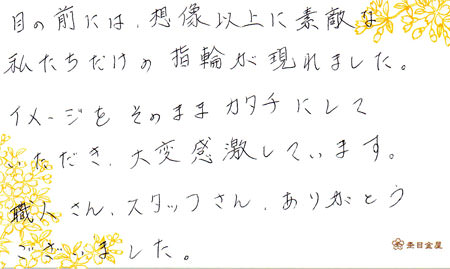 目の前には、想像以上に素敵な
私たちだけの指輪が現れました。
イメージをそのままカタチにして
いただき、大変感激しています。
職人さん、スタッフさん、ありがとう
ございました。
杢目金屋